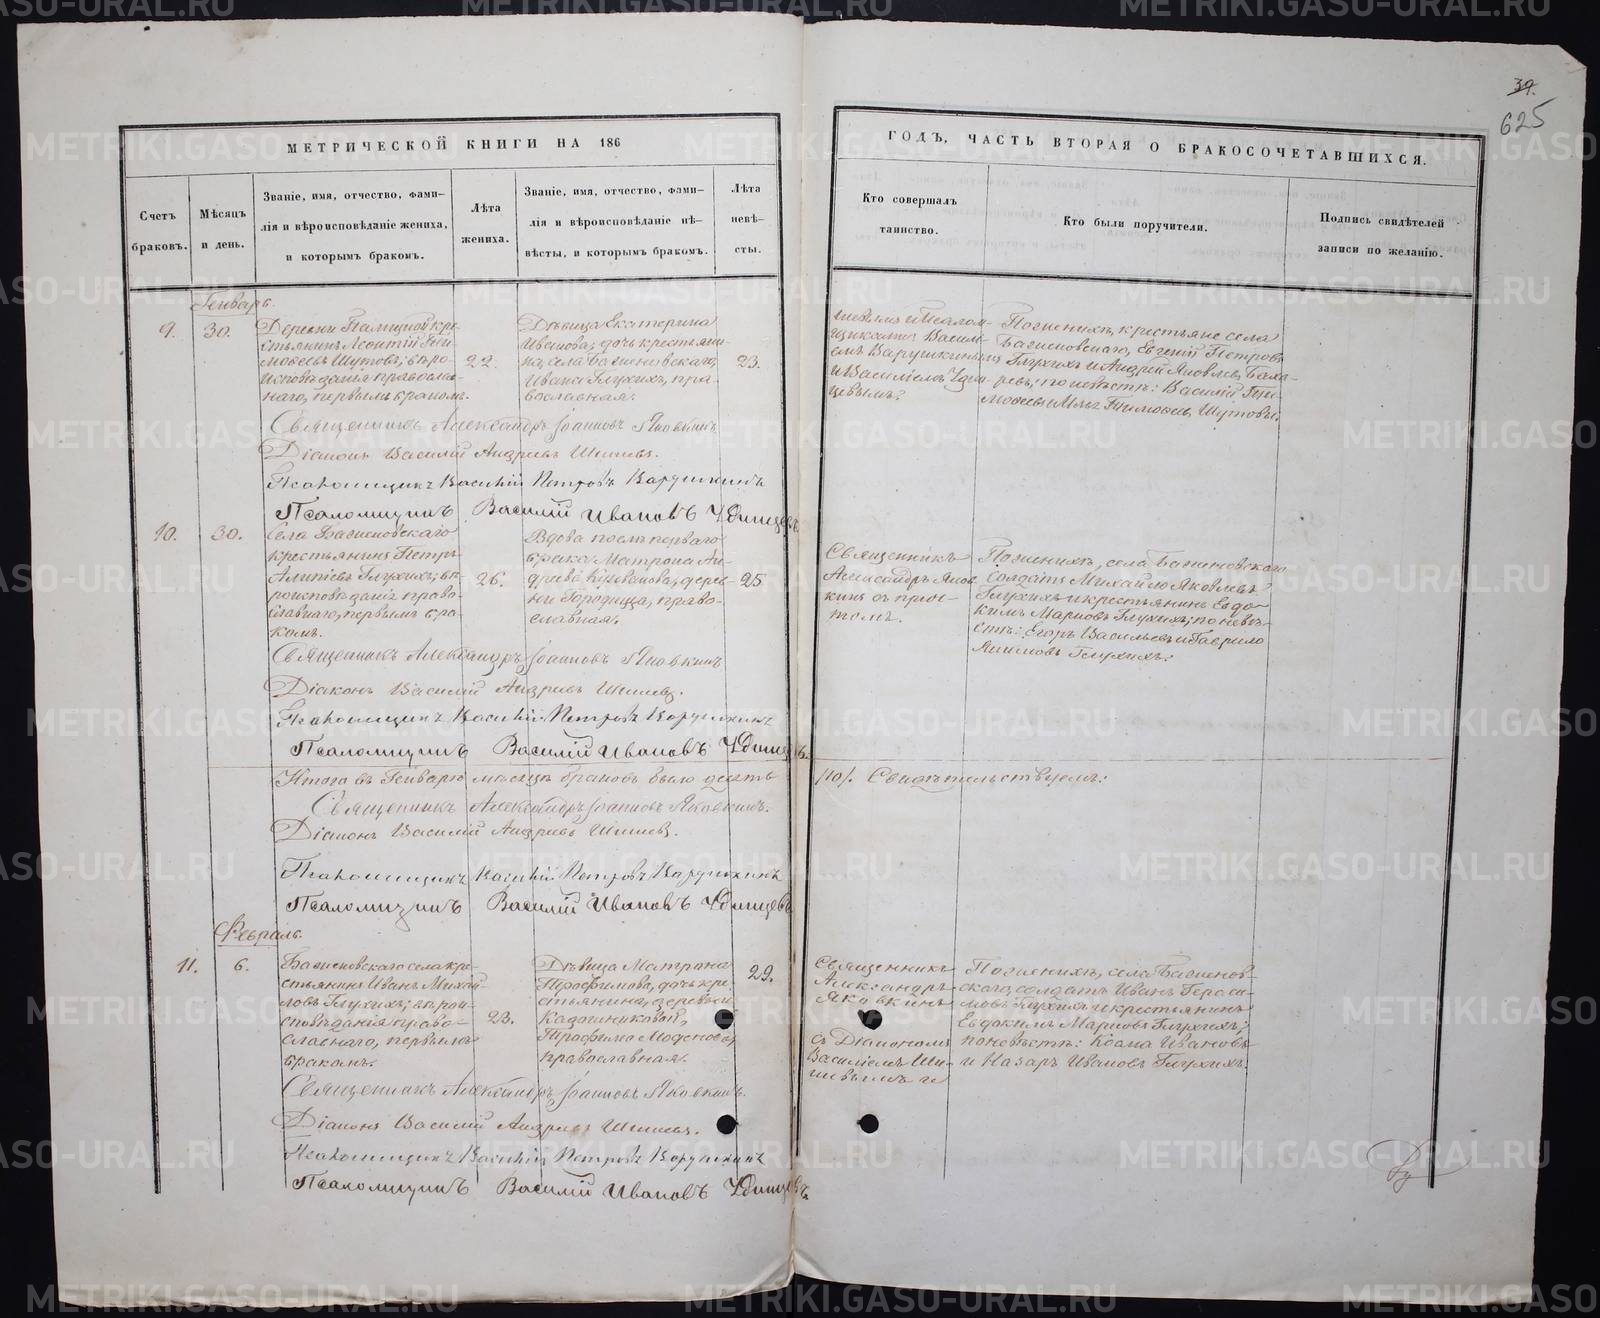 39.
625
МЕТРИЧЕСКОЙ КНИГИ НА 186
ГОДЪ, ЧАСТЬ ВТОРАЯ О БРАКОСОЧЕТАВШИХСЯ.
Счетъ браковъ.
Мѣсяцъ и день.
Званіе, имя, отчество, фами-
лія и вѣроисповѣданіе жениха,
и которымъ бракомъ.
Лѣта жениха.
Званіе, имя, отчество, фами-
лія и вѣроисповѣданіе не-
вѣсты, и которымъ бракомъ.
Лѣта невѣ-
сты.
Кто совершалъ
таинство.
Кто были поручители.
Подпись свидѣтелей
записи по желанію.
Генварь.
9.
30.
Деревни крe-
стьянинъ Леонтій Ти-
моѳеевъ Шутовъ, вѣро-
исповѣданія православ-
наго, первымъ бракомъ.
22.
Дѣвица Екатерина
Иванова, дочь крестьяни-
на, села
Ивана Глухихъ, пра-
вославная.
23.
и Псалом-
щиками Васили-
емъ Варушкинымъ
и Василіемъ Удин-
цевымъ.
По женихѣ, крестьяне села
Евгеній Петровъ
Глухихъ и Андрей Яковлевъ
по невѣстѣ: Василій Ти-
моѳеевъ и Тимоѳеевъ Шутовы.
Священникъ Александръ Іоанновъ Яковкинъ
Діаконъ Василій Андреевъ
Псаломщикъ Василій Петровъ Варушкинъ
Псаломщикъ Василій Ивановъ Удинцевъ
10.
30.
Села
крестьянинъ Петръ
Глухихъ, вѣ-
роисповѣданія право-
славнаго, первымъ бра-
комъ.
26.
Вдова послѣ перваго
брака Матрона Ан-
дреева дерев-
ни Городища, право-
славная.
25
Священникъ
Александръ Яков-
кинъ съ прич-
томъ.
По женихѣ, села
солдатъ Михайло Яковлевъ
Глухихъ и крестьянинъ Евдо-
кимъ Марковъ Глухихъ; по невѣ-
стѣ: Егоръ Васильевъ и Гаврило
Глухихъ.
Священникъ Александръ Іоанновъ Яковкинъ
Діаконъ Василій Андреевъ
Псаломщикъ Василій Петровъ Варушкинъ
Псаломщикъ Василій Ивановъ Удинцевъ.
Итого въ Генварѣ мѣсяцѣ браковъ было десять
/10/. Свидѣтельствуемъ:
Священникъ Александръ Іоанновъ Яковкинъ.
Діаконъ Василій Андреевъ
Псаломщикъ Василій Петровъ Варушкинъ
Псаломщикъ Василій Ивановъ Удинцевъ
Февраль.
11.
6.
села кре-
стьянинъ Иванъ Михай-
ловъ Глухихъ, вѣрои-
сповѣданія право-
славнаго, первымъ
бракомъ.
23.
Дѣвица Матрона
Трофимова, дочь кре-
стьянина, деревни
Трофима
православная.
29.
Священникъ
Александръ
Яковкинъ
съ Діакономъ
Василіемъ Ши-
и
По женихѣ, села
солдатъ Иванъ Гераси-
мовъ Глухихъ и крестьянинъ
Евдокимъ Марковъ Глухихъ;
по невѣстѣ: Козма Ивановъ
и Назаръ Ивановъ Глухихъ.
Священникъ Александръ Іоанновъ Яковкинъ.
Діаконъ Василій Андреевъ
Псаломщикъ Василій Петровъ Варушкинъ
Псаломщикъ Василій Ивановъ Удинцевъ
METRIKI.GASO-URAL.RU